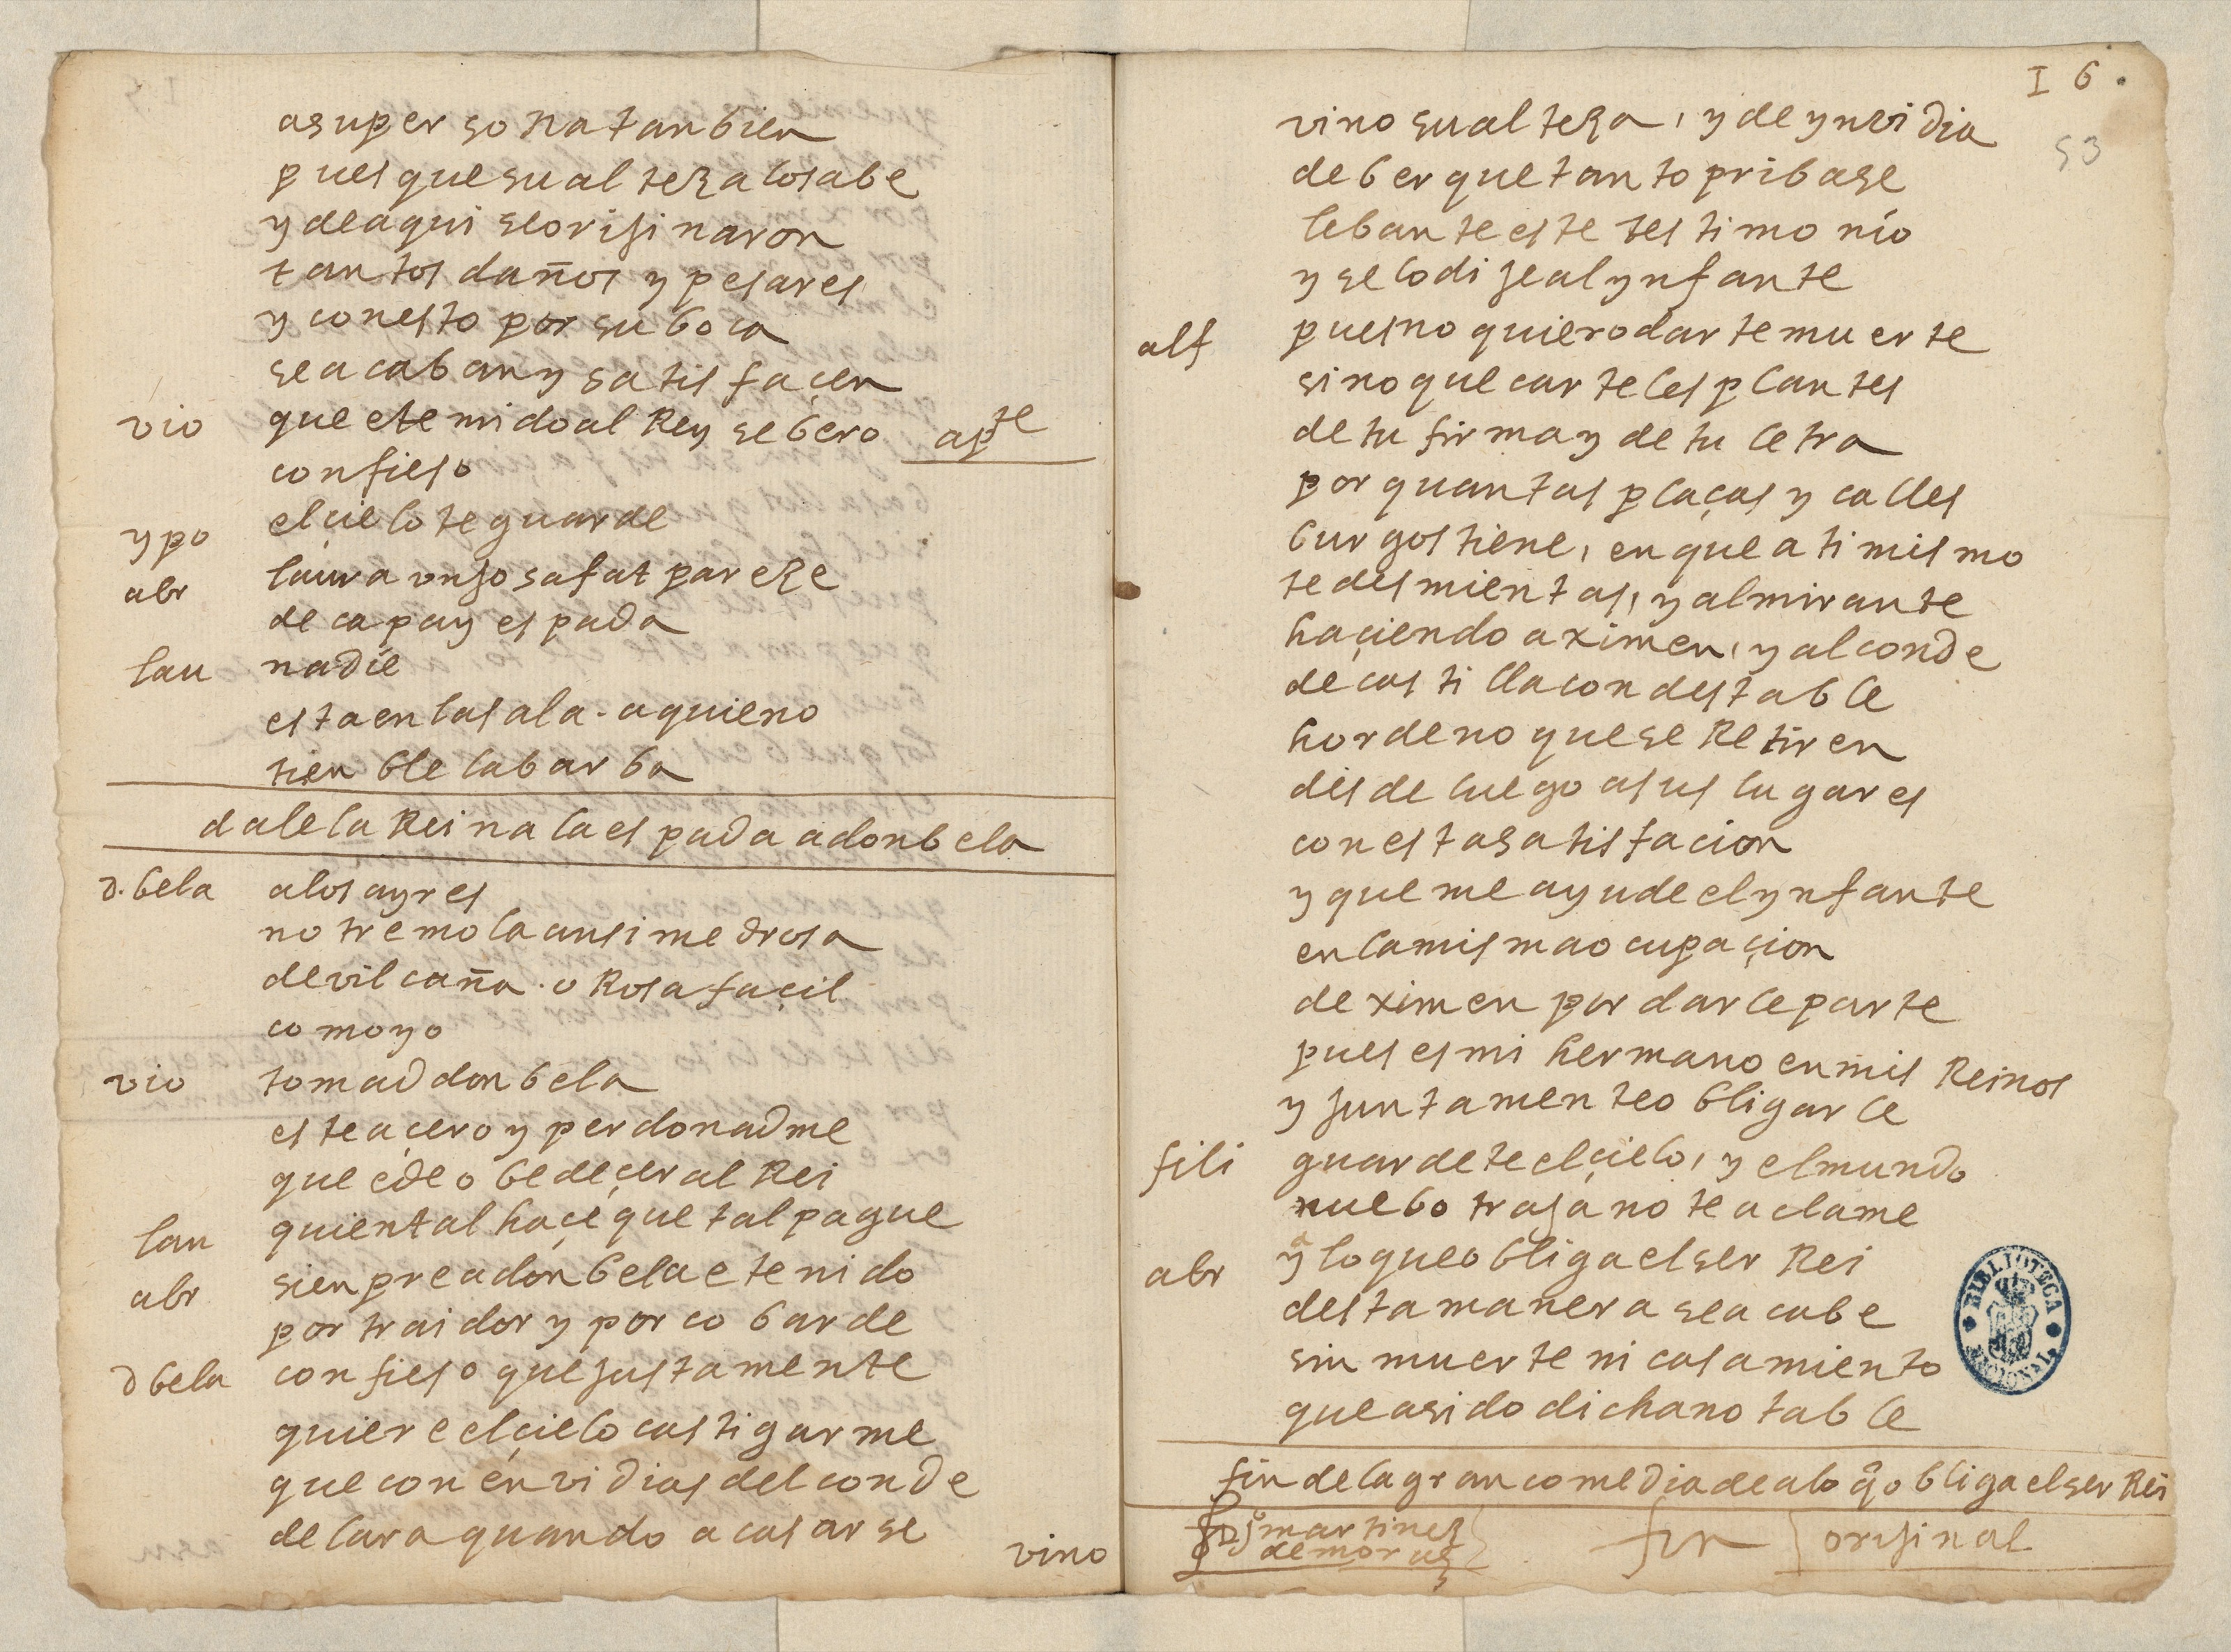 a su persona tanbien
pues que su alteza lo sabe
y de aqui se orijinaron
tantos daños y pesares
y con esto por su boca
se acaban y satisfaçen
vio que e temido al Rey sebero apte
confieso
ypo el çielo te guarde
abr laura un josafat pareze
de capa y espada
lau nadie
esta en la sala . a quien o
tienble la barba
dale la Reina la espada a don bela
d. bela a los ayres
no tremola ansi medrosa
devil caña . o Rosa façil
como yo
vio tomad don bela
este açero y perdonadme
que e de obedeçer al Rei
lau quien tal haçe que tal pague
abr sienpre a don bela e tenido
por traidor y por cobarde
d bela confieso que justamente
quiere el çielo castigarme
que con envidias del conde
de lara quando a casarse
vino
I 6 .
53
vino su alteza, y de ynvidia
de ber que tanto pribase
lebante este testimonio
y se lo dije al ynfante
alf pues no quiero darte muerte
sino que carteles plantes
de tu firma y de tu letra
por quantas plaças y calles
burgos tiene, en que a ti mismo
te desmientas, y almirante
haçiendo a ximen, y al conde
de castilla condestable
hordeno que se Retiren
desde luego a sus lugares
con esta satisfacion
y que me ayude el ynfante
en la misma ocupaçion
de ximen por darle parte
pues es mi hermano en mis Reinos
y juntamente obligarle
fili guardete el çielo, y el mundo
nuebo trajano te aclame
abr y a lo que obliga el ser Rei
desta manera se acabe
sin muerte ni casamiento
que a sido dicha notable
fin de la gran comedia de a lo q̃ obliga el ser Rei
martinez fin orijinal
de mora
BIBLIOTECA NACIONAL